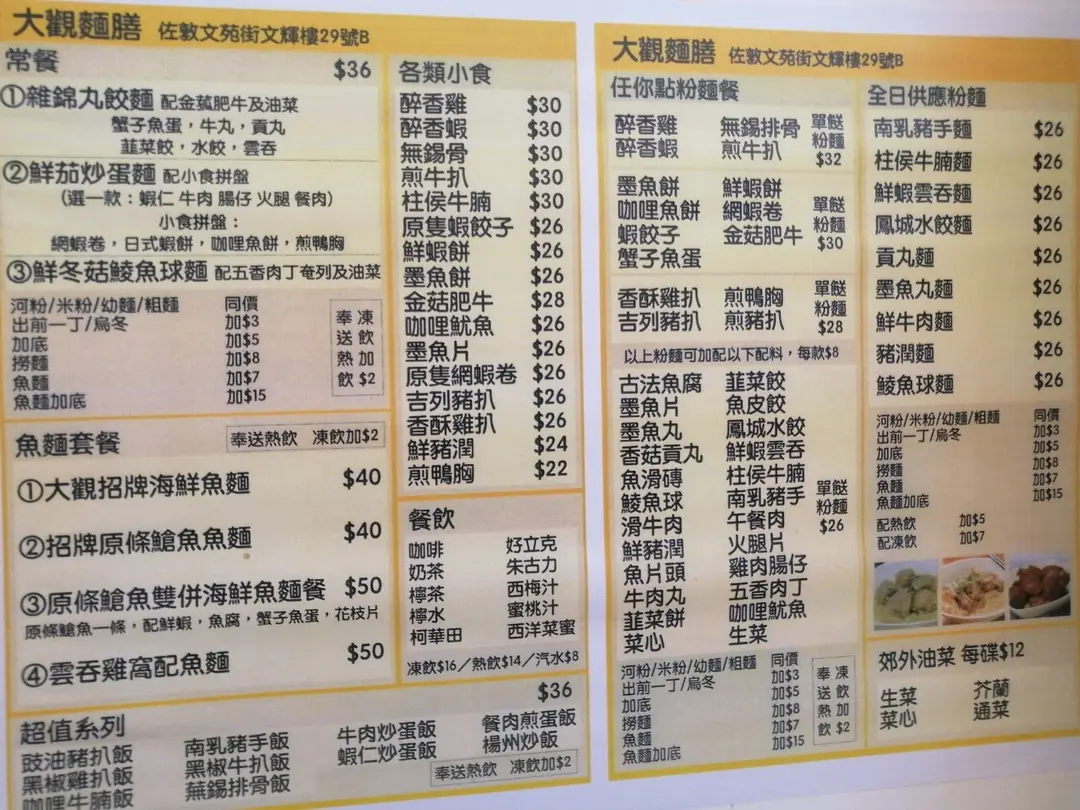 大觀麵膳 佐敦文苑街文輝樓29號B
常餐 $36
①雜錦丸餃麵 配金菰肥牛及油菜
蟹子魚蛋,牛丸,貢丸
韮菜餃,水餃,雲吞
②鮮茄炒蛋麵 配小食拼盤
(選一款:蝦仁 牛肉 腸仔 火腿 餐肉)
小食拼盤:
網蝦卷,日式蝦餅,咖哩魚餅,煎鴨胸
③鮮冬菇鯪魚球麵 配五香肉丁奄列及油菜
河粉/米粉/幼麵/粗麵 同價
出前一丁/烏冬 加$3
加底 加$5
撈麵 加$8
魚麵 加$7
魚麵加底 加$15
奉送熱飲 凍飲加$2
魚麵套餐 奉送熱飲 凍飲加$2
①大觀招牌海鮮魚麵 $40
②招牌原條鯧魚魚麵 $40
③原條鯧魚雙併海鮮魚麵餐 $50
原條鯧魚一條,配鮮蝦,魚腐,蟹子魚蛋,花枝片
④雲吞雞窩配魚麵 $50
各類小食
醉香雞 $30
醉香蝦 $30
無錫骨 $30
煎牛扒 $30
柱侯牛腩 $30
原隻蝦餃子 $26
鮮蝦餅 $26
墨魚餅 $26
金菇肥牛 $28
咖哩魷魚 $26
墨魚片 $26
原隻網蝦卷 $26
吉列豬扒 $26
香酥雞扒 $26
鮮豬潤 $24
煎鴨胸 $22
餐飲
咖啡 好立克
奶茶 朱古力
檸茶 西梅汁
檸水 蜜桃汁
柯華田 西洋菜蜜
凍飲$16/熱飲$14/汽水$8
超值系列 $36
豉油豬扒飯 南乳豬手飯 牛肉炒蛋飯 餐肉煎蛋飯
黑椒雞扒飯 黑椒牛扒飯 蝦仁炒蛋飯 楊州炒飯
咖哩牛腩飯 無錫排骨飯
奉送熱飲 凍飲加$2
大觀麵膳 佐敦文苑街文輝樓29號B
任你點粉麵餐
醉香雞 無錫排骨
醉香蝦 煎牛扒
單餸粉麵 $32
墨魚餅 鮮蝦餅
咖哩魚餅 網蝦卷
蝦餃子 金菇肥牛
蟹子魚蛋
單餸粉麵 $30
香酥雞扒 煎鴨胸
吉列豬扒 煎豬扒
單餸粉麵 $28
以上粉麵可加配以下配料,每款$8
古法魚腐 韮菜餃
墨魚片 魚皮餃
墨魚丸 鳳城水餃
香菇貢丸 鮮蝦雲吞
魚滑磚 柱侯牛腩
鯪魚球 南乳豬手
滑牛肉 午餐肉
鮮豬潤 火腿片
魚片頭 雞肉腸仔
牛肉丸 五香肉丁
韮菜餅 咖哩魷魚
菜心 生菜
單餸粉麵 $26
河粉/米粉/幼麵/粗麵 同價
出前一丁/烏冬 加$3
加底 加$5
撈麵 加$8
魚麵 加$7
魚麵加底 加$15
奉送熱飲 凍飲加$2
全日供應粉麵
南乳豬手麵 $26
柱侯牛腩麵 $26
鮮蝦雲吞麵 $26
鳳城水餃麵 $26
貢丸麵 $26
墨魚丸麵 $26
鮮牛肉麵 $26
豬潤麵 $26
鯪魚球麵 $26
河粉/米粉/幼麵/粗麵 同價
出前一丁/烏冬 加$3
加底 加$5
撈麵 加$8
魚麵 加$7
魚麵加底 加$15
配熱飲 加$5
配凍飲 加$7
郊外油菜 每碟$12
生菜 芥蘭
菜心 通菜